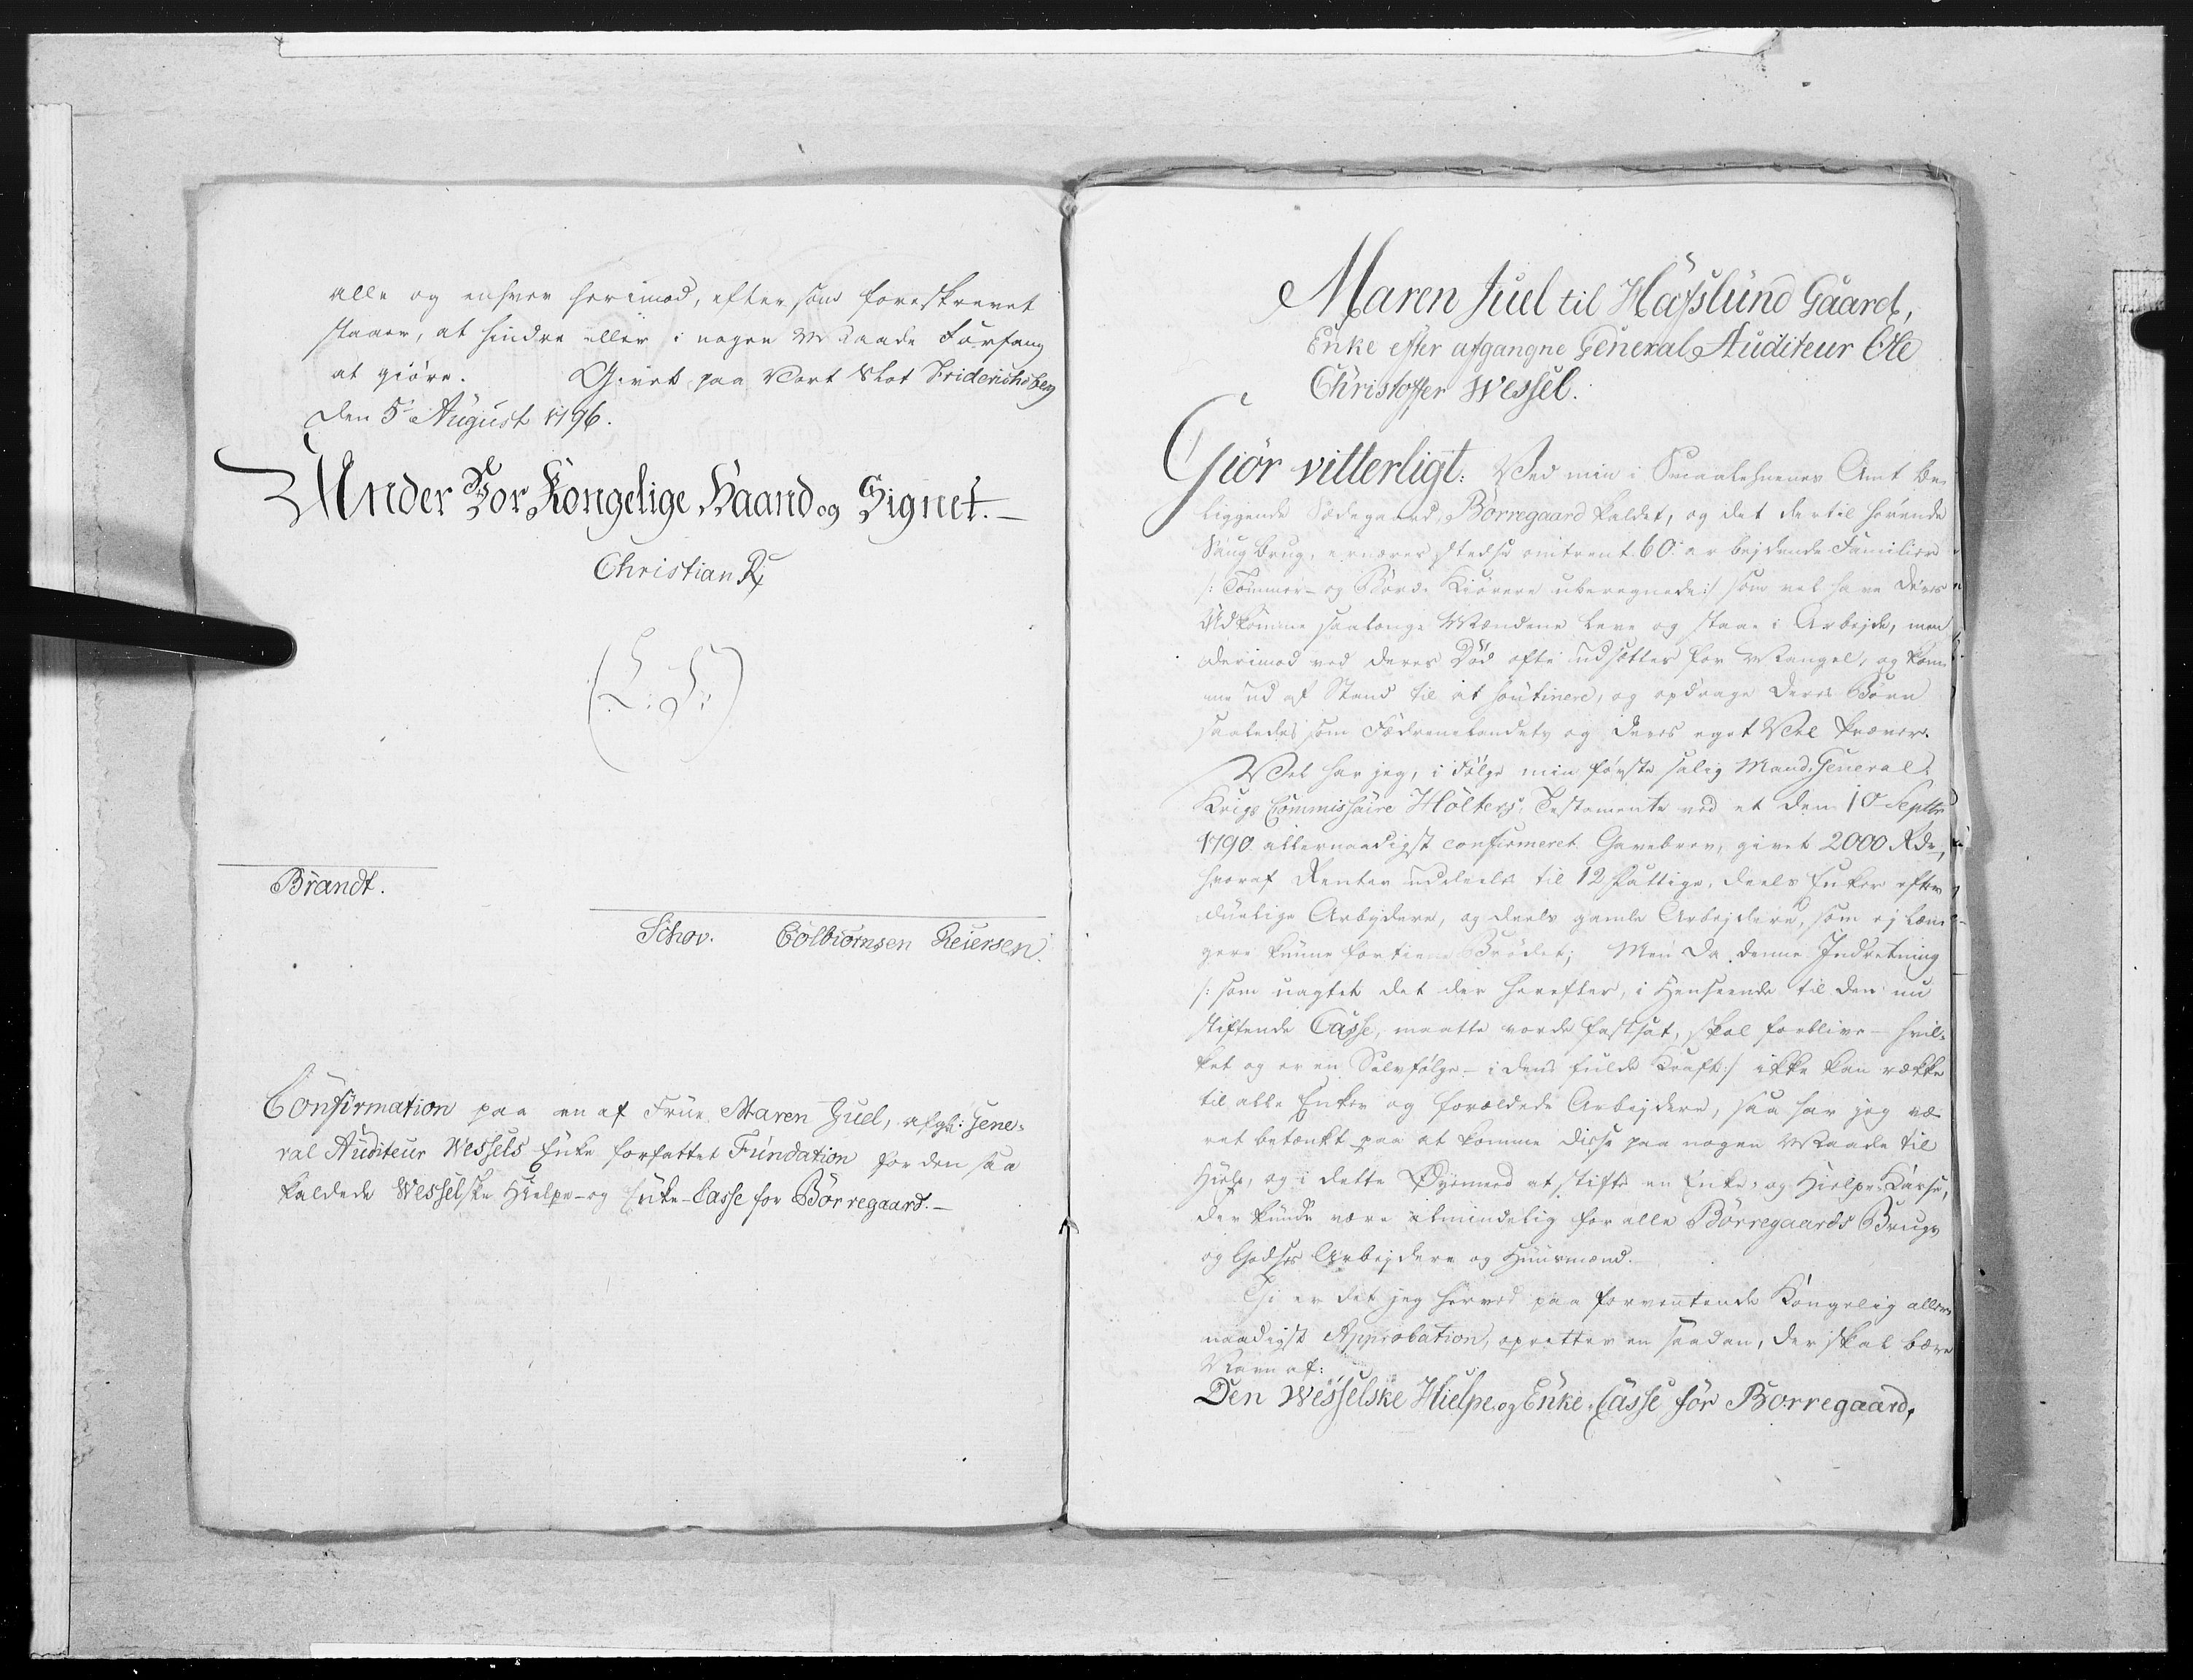 alle og enhver herimod, eftersom foreskrevet
staaer, at hindre eller i nogen Maade Forfang
at giöre. Givet paa Vort Slot Friderichsberg
den 5te August 1796.
Under Vor Kongelige Haand og Signet.—
Christian R
(L. S.)
Brandt.
Schov. Colbiörnsen Reiersen.
Confirmation paa en af Frue Maren Juel, afg: Gene-
ral Auditeur Wessels Enke forfattet Fundation for den saa
kaldede Wesselske Hielpe- og Enke-Casse for Börregaard.—
Maren Juel til Hafslund Gaard,
Enke efter afgangne General Auditeur Ole
Christoffer Wessel.
Giör vitterligt: Ved min i Smaalehnenes Amt be-
liggende Sædegaard, Börregaard kaldet, og det dertil hörende
Saugbrug, ernæres stedse omtrent 60 arbejdende Familier
/: Tömmer- og Bord-Kiörere uberegnede:/ som vel have deres
Udkomme saalænge Mændene leve og staae i Arbejde, men
derimod ved deres Död ofte udsættes for Mangel, og kom-
me ud af Stand til at soutinere, og opdrage deres Börn
saaledes som Fædrenelandets og deres eget Vel kræver.
Vel har jeg, i Fölge min förste salig Mand, General-
Krigs Commissaire Holters, Testamente ved et den 10 Septbr
1790 allernaadigst confirmeret Gavebrev, givet 2000 Rdr,
hvoraf Renter uddeeles til 12 Fattige, deels Enker efter
duelige Arbejdere, og deels gamle Arbejdere, som ej læn-
gere kunne fortiene Brödet; Men da denne Indretning
/: som uagtet det der herefter, i Henseende til den nu
stiftende Casse, maatte vorde fastsat, skal forblive — hvil-
ket og er en Selvfölge — i dens fulde Kraft:/ ikke kan række
til alle Enker og forældede Arbejdere, saa har jeg væ-
ret betænkt paa at komme disse paa nogen Maade til
Hielp, og i dette Öyemeed at stifte en Enke- og Hielpe-Casse,
der kunde være almindelig for alle Börregaards Brugs
og Godses Arbejdere og Huusmænd.
Thi er det jeg herved paa forventende Kongelig aller-
naadigst Approbation, opretter en saadan, der skal bære
Navn af:
Den Wesselske Hielpe- og Enke-Casse for Borregaard,